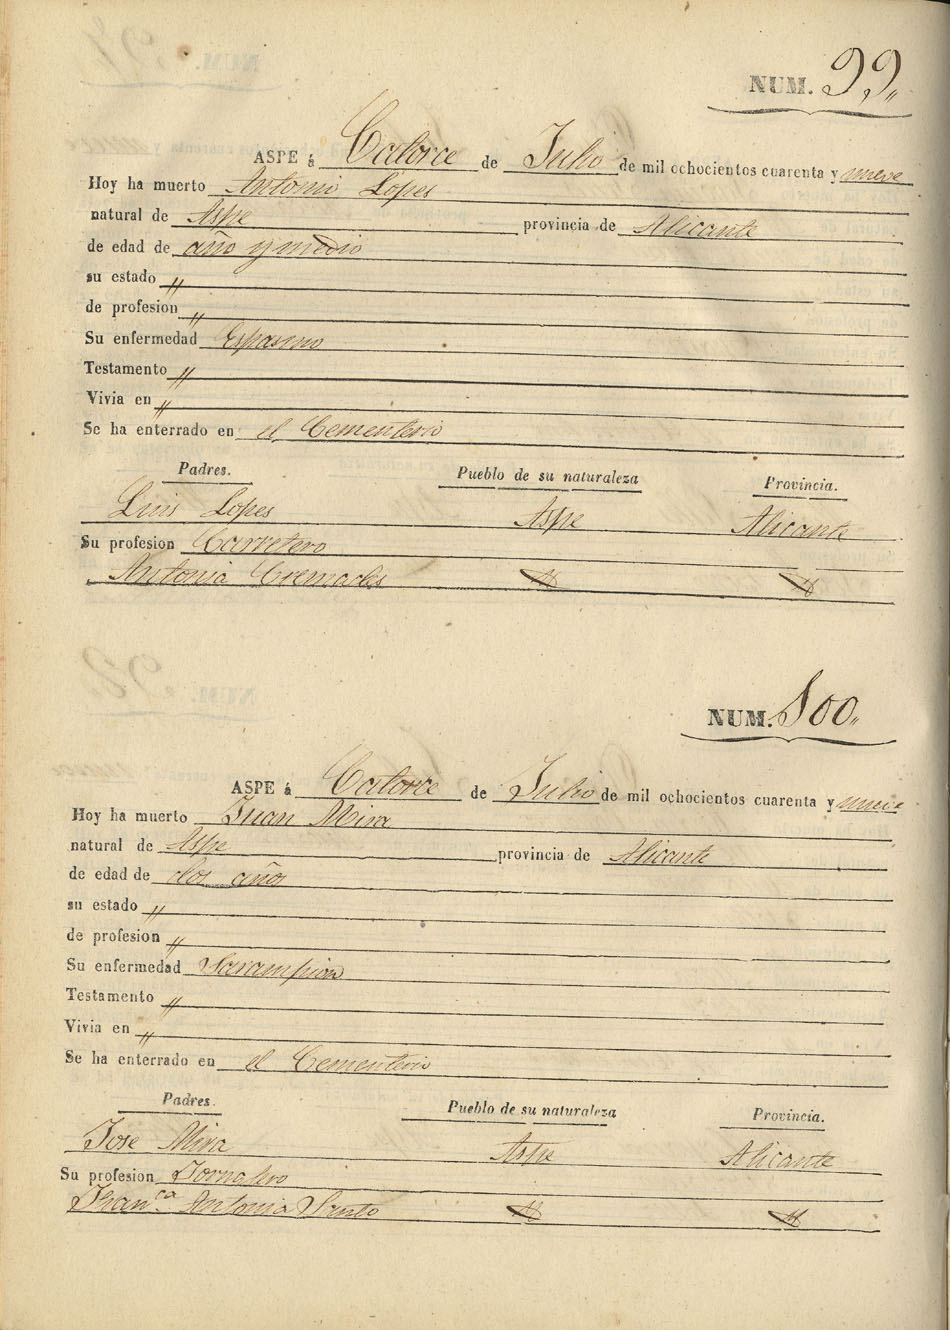 NUM. 99,,
ASPE á Catorce de Julio de mil ochocientos cuarenta y nueve
Hoy ha muerto Antonio Lopes
natural de Aspe provincia de Alicante
de edad de año y medio
su estado "
de profesion "
Su enfermedad Espasmo
Testamento "
Vivia en "
Se ha enterrado en el Cementerio
Padres. Pueblo de su naturaleza Provincia.
Luis Lopes Aspe Alicante
Su profesion Carretero
Antonia Cremades
NUM. 100,,
ASPE á Catorce de Julio de mil ochocientos cuarenta y nueve
Hoy ha muerto Juan Mira
natural de Aspe provincia de Alicante
de edad de dos años
su estado "
de profesion "
Su enfermedad Sarampion
Testamento "
Vivia en "
Se ha enterrado en el Cementerio
Padres. Pueblo de su naturaleza Provincia.
Jose Mira Aspe Alicante
Su profesion Jornalero
Fran.ca Antonia